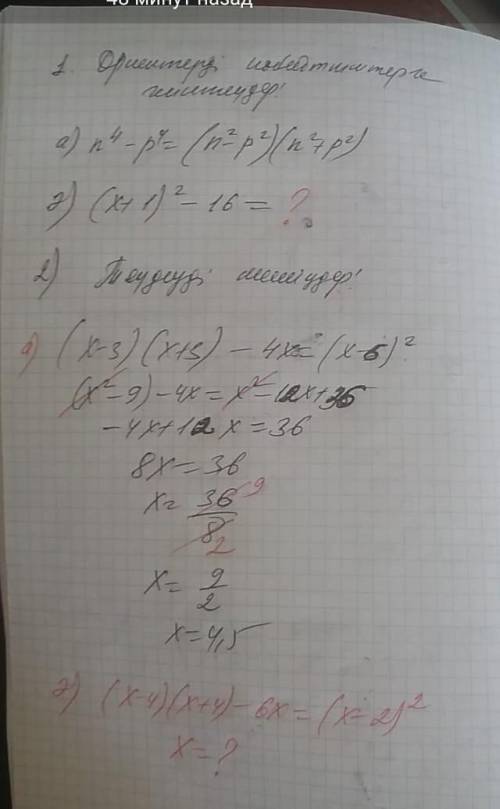 48 минут назад
1. Өрнектерді көбейткіштерге
жіктеңдер!
а) n⁴ - p⁴ = (n² - p²)(n² + p²)
ә) (x+1)² - 16 = ?
2) Теңдеуді шешіңдер!
а) (x-3)(x+3) - 4x = (x-6)²
(x² - 9) - 4x = x² - 12x + 36
-4x + 12x = 36
8x = 36
x = 36/8 9 2
x = 9/2
x = 4,5
ә) (x-4)(x+4) - 6x = (x-2)²
x = ?